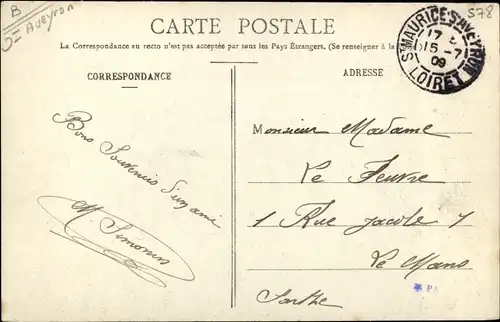 B
S/Aveyron
578
CARTE POSTALE
La Correspondance au recto n'est pas acceptée par tous les Pays Étrangers. (Se renseigner à la
CORRESPONDANCE
ADRESSE
ST MAURICE-S-AVEYRON
17
15 -7
09
LOIRET
Bons Souvenirs d'un ami
M. Simonin
Monsieur Madame
Le Feuvre
1 Rue Jacole 1
Le Mans
Sarthe